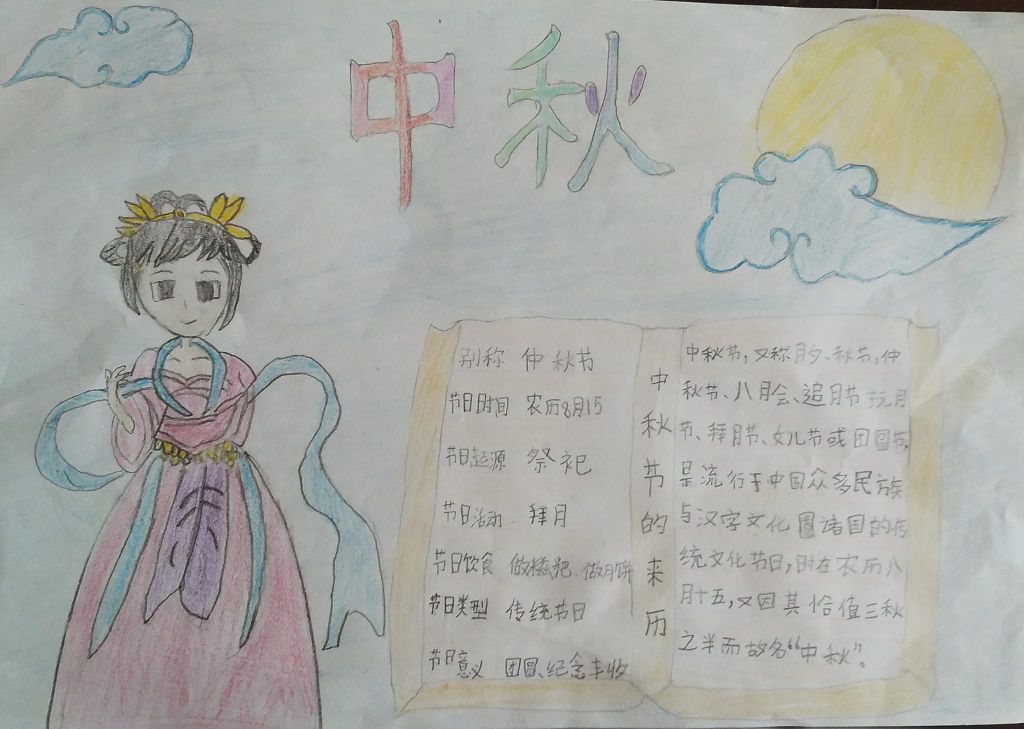 中秋
别称 仲秋节
节日时间 农历8月15
节日起源 祭祀
节日活动 拜月
节日饮食 做糍粑、做月饼
节日类型 传统节日
节日意义 团圆、纪念丰收
中秋节的来历
中秋节,又称月夕、秋节,仲
秋节、八月会、追月节玩月
节、拜月节、女儿节或团圆节,
是流行于中国众多民族
与汉字文化圈诸国的传
统文化节日,时在农历八
月十五,又因其恰值三秋
之半而故名“中秋”。